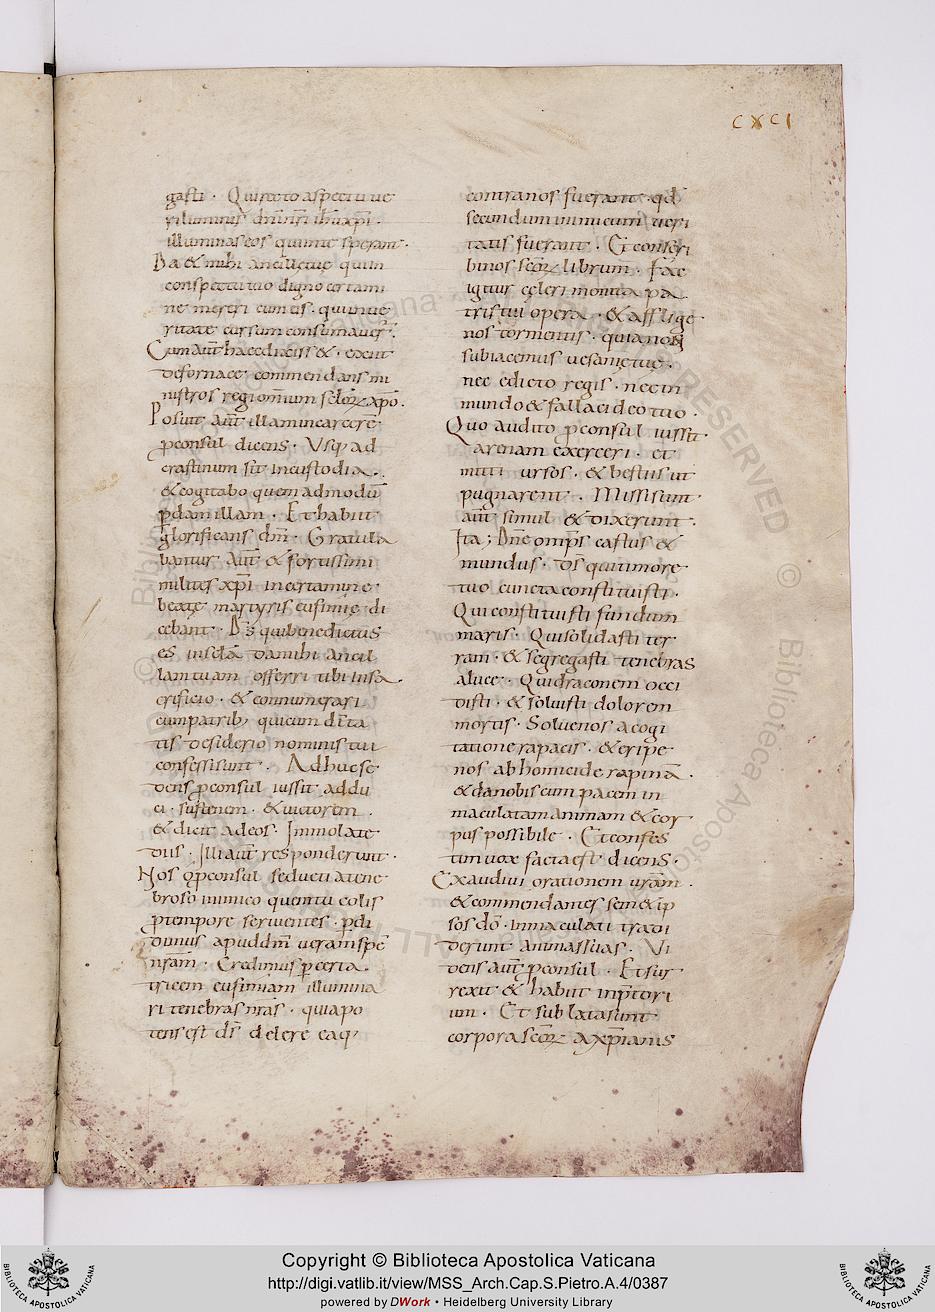 CXCI
gasti . Qui recto aspectu ue
ri luminis dn̄i nr̄i ihu xp̄i .
illuminas eos qui in te sperant .
Da & mihi ancille tuę qui in
conspectu tuo digno certami
ne mereri cum eis . qui in ue
ritate cursum
Cum aut̄ haec dixiss& . exiit
de fornace commendans mi
nistros regi omnium xp̄o .
Posuit aut̄ illam in carcere
ꝓconsul dicens . Vsq; ad
crastinum sit in custodia .
& cogitabo quem admodū
ꝑdam illam . Et habiit
glorificans dm̄ . Gratula
bantur aut̄ & fortissimi
milites xp̄i in certamine
beatę martyris eufimię di
cebant . D̄s qui benedictus
es in scła da mihi ancil
lam tuam offerri tibi in sa
crificio . & connumerari
cum patrib; qui cum
tis desiderio nominis tui
confessi sunt . Adhuc se
dens ꝓconsul iussit addu
ci . sustenem . & uictorem .
& dicit ad eos . Immolate
diis . Illi aut̄ responderunt .
Nos ꝓconsul seducti a tene
broso inimico quem tu colis
ꝓ tempore seruientes . ꝑdi
dimus apud dm̄ ueram spē
nrām . Credimus ꝑ certa
tricem eufimiam illumina
ri tenebras nrās . quia po
tens est ds̄ delere ea q;
contra nos fuerant . qd̄
secundum inimicum ueri
tatis fuerant . Et conscri
bi nos scōꝝ librum . Fac
igitur celeri monita pa
tris tui opera . & afflige
nos tormentis . quia non
subiacemus uesanię tuę .
nec edicto regis . nec in
mundo & fallaci deo tuo .
Quo audito ꝓconsul iussit
arenam exerceri . et
mitti ursos . & bestiis ut
pugnarent . Missi sunt
aut̄ simul & dixerunt .
Ita ; Dn̄e omp̄s castus &
mundus . Ds̄ qui timore
tuo cuncta constituisti .
Qui constituisti fundum
maris . Qui solidasti ter
ram . & segregasti tenebras
a luce . Qui draconem occi
disti . & soluisti dolorem
mortis . Solue nos a cogi
tatione rapacis . & eripe
nos ab homicide rapinā .
& da nobis cum pacem in
maculatam animam & cor
pus possibile . Et confes
tim uox facta est dicens .
Exaudiui orationem urām .
& commendantes sem& ip
sos dō . inmaculati tradi
derunt animas suas . Vi
dens aut̄ ꝓconsul . Et sur
rexit & habiit in p̄tori
um . Et sublata sunt
corpora scōꝝ a xp̄ianis
Copyright © Biblioteca Apostolica Vaticana
http://digi.vatlib.it/view/MSS_Arch.Cap.S.Pietro.A.4/0387
powered by DWork • Heidelberg University Library